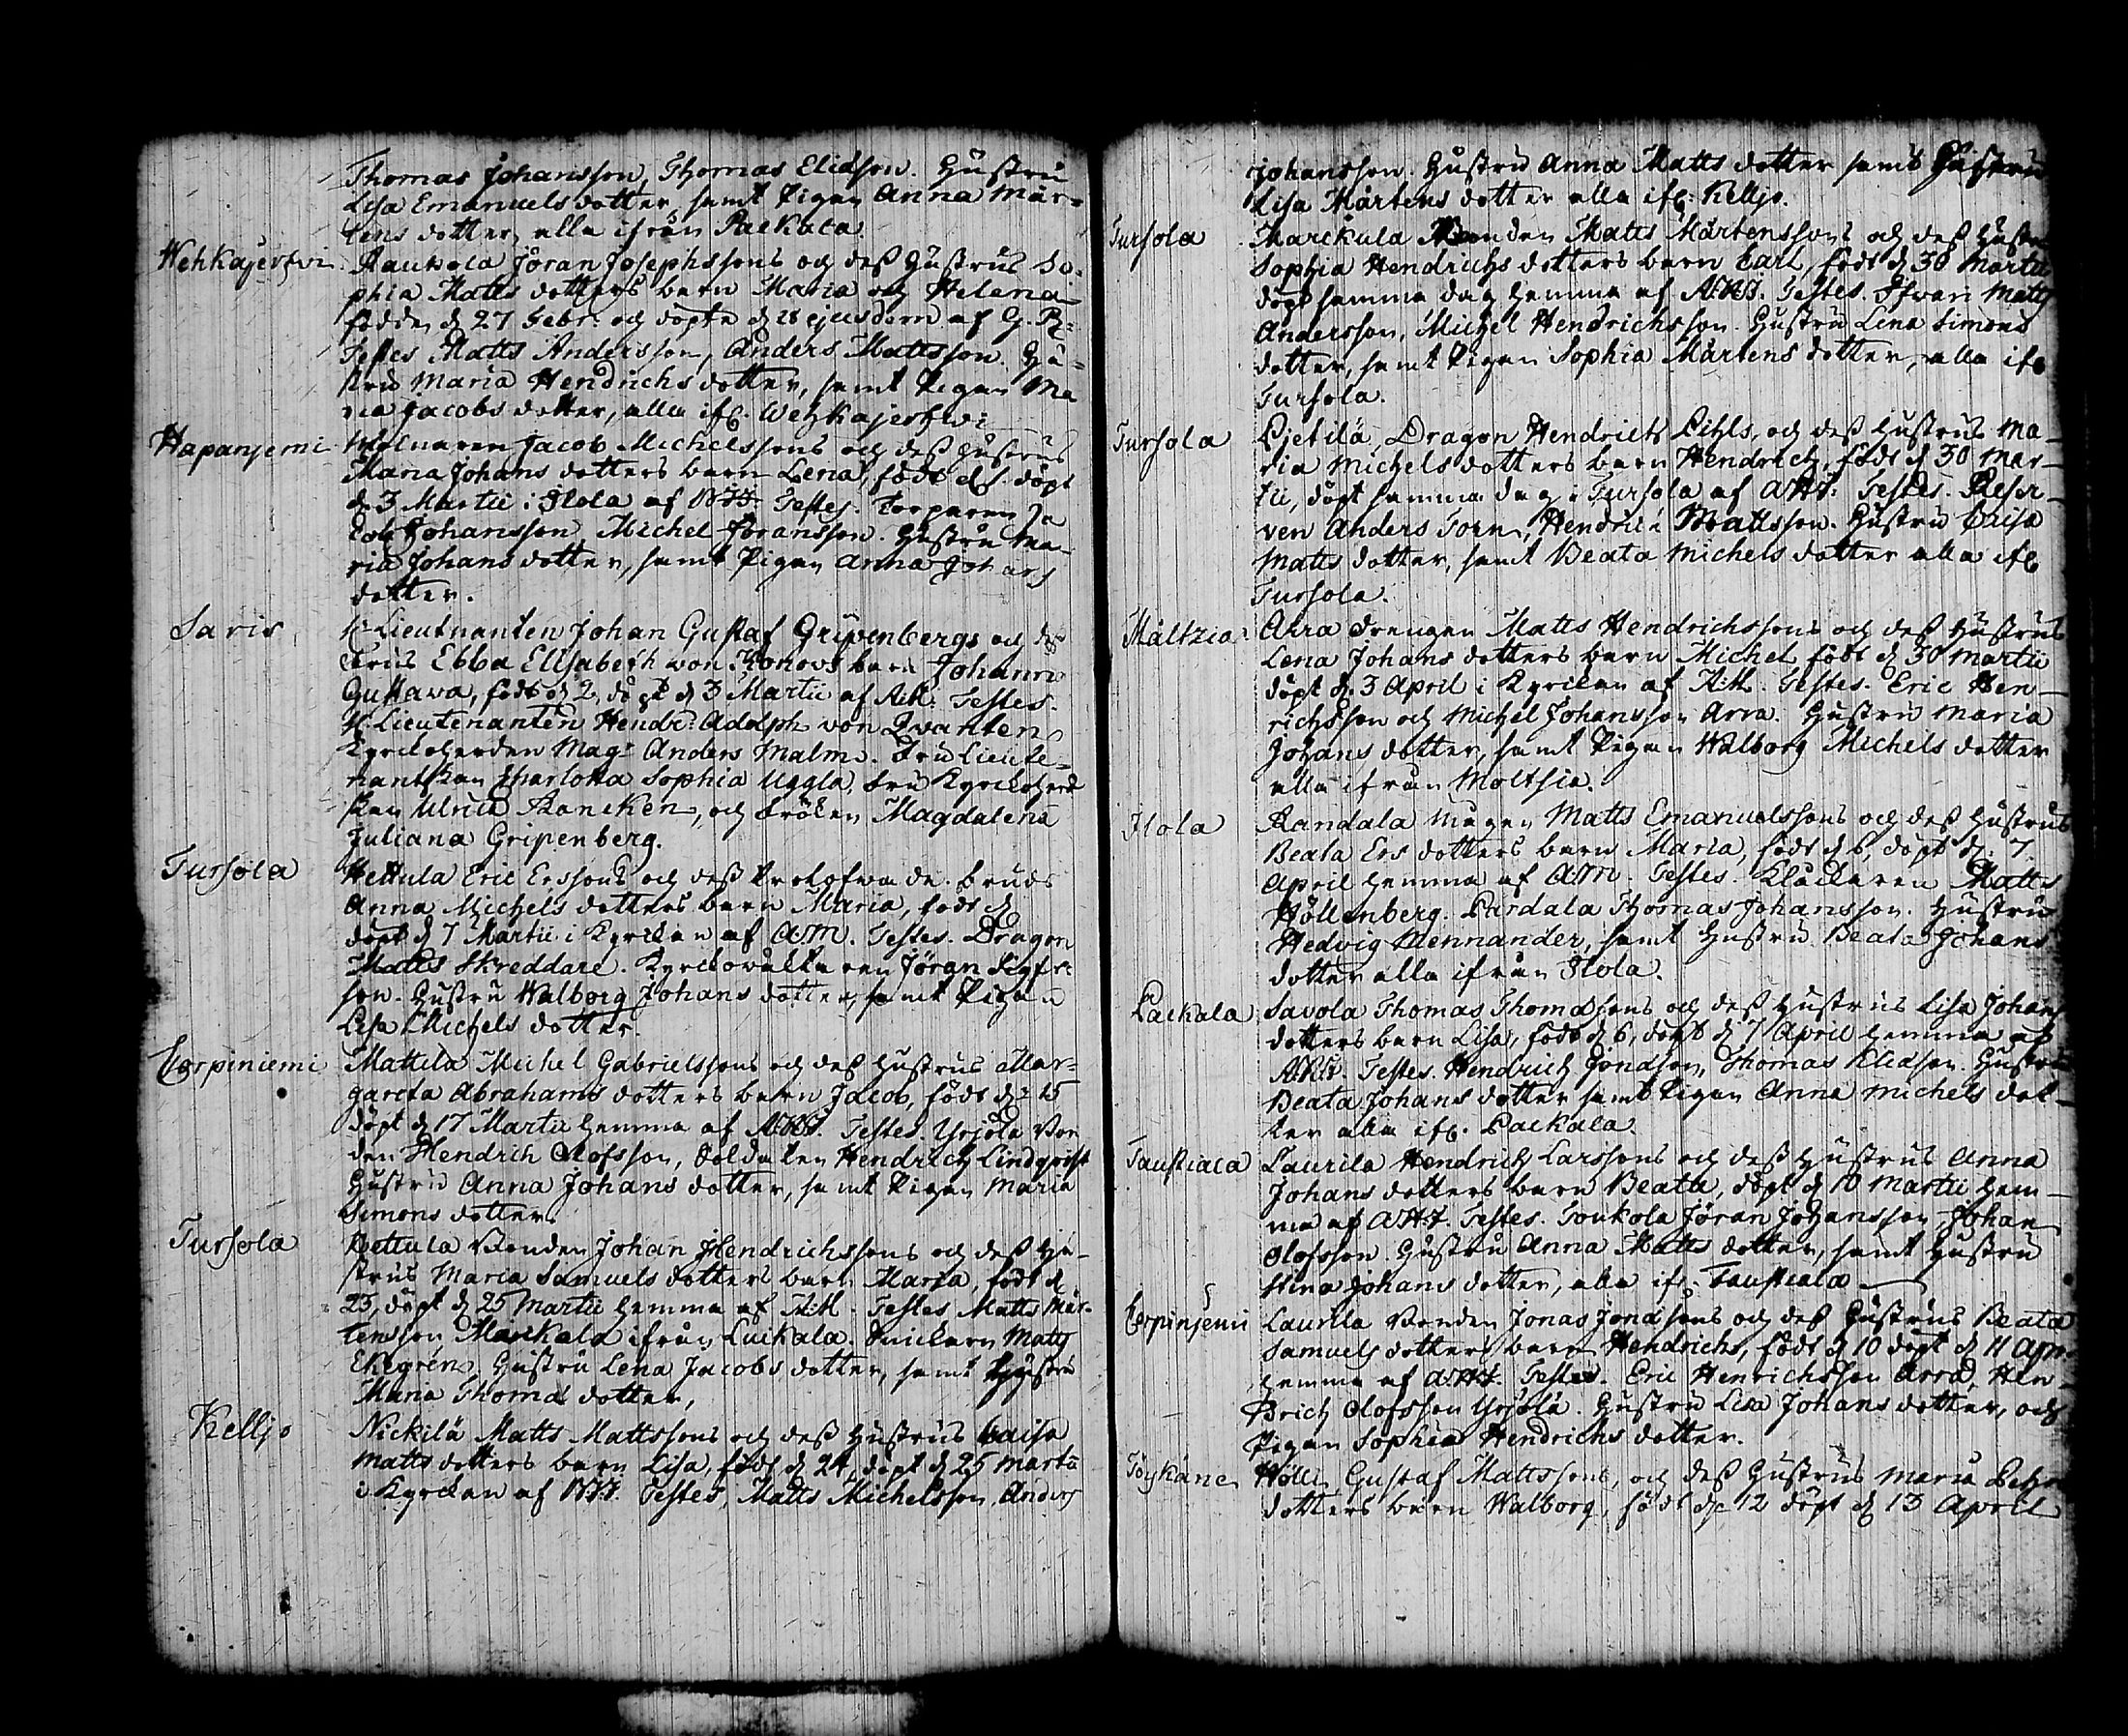 Thomas Johansson, Thomas Elidson. Hustru
Lisa Emanuels dotter, samt Pigan Anna Mår-
tens dotter, alla ifrån Packala
Wehkajerfvi Raukola Jöran Josephssons och dess Hustrus So-
phia Matts dotters barn Maria och Helena
födde d 27 Febr: och döpte d 28 ejusdem af G.
Testes Matts Andersson, Anders Mattsson. Hu-
stru Maria Hendrichs dotter, samt Pigan Ma
ria Jacobs dotter, alla ifr. Wehkajerfwi
Hapanjemi Molnaren Jacob Michelssons och dess Hustrus
Maria Johans dotters barn Lena, födt döpt
d. 3 Martii i Ilola af Testes. Torparen Ja
cob Johansson, Michel Jöransson. Hustru Ma-
ria Johans dotter, samt Pigan Anna Johans
dotter.
Saris H: Lieutnanten Johan Gustaf Gripenbergs och des
Frus Ebba Elisabeth von Konows barn Johanna
Gustava, födt d 2, döpt d 3 Martii af A:M: Testes.
H: Lieutenanten Hendr: Adolph von Qvanten
Kyrckoherden Mag: Anders Malm. Fru Lieute-
nantskan Charlotta Sophia Uggla, Fru Kyrckoherd
skan Ulrica Pancken, och Fröken Magdalena
Juliana Gripenberg.
Tursola Hettula Eric Erssons och dess trolofwade bruds
Anna Michels dotters barn Maria, födt d
döpt d 7 Martii i Kyrckan af A:M. Testes. Dragon
Matts Skreddare. Kyrckovaktaren Jöran Sigfr:
son. Hustru Walborg Johans dotter, samt Pigan
Lisa Michels dotter.
Torpiniemi Mattila Michel Gabrielssons och dess Hustrus Mar-
gareta Abrahams dotters barn Jacob, födt d: 15
döpt d 17 Martii hemma af Testes. Yrjola Bon
den Hendrich Olofsson, Soldaten Hendrich Lindqvist
Hustru Anna Johans dotter, samt Pigan Maria
Simons dotter.
Tursola Pettula Bonden Johan Hendrichssons och dess Hu-
strus Maria Samuels dotters barn Maria, födt d
23, döpt d 25 Martii hemma af A:M. Testes Matts Mår-
tensson Marckala ifrån Luikala. Snickarn Matts
Ekegrén. Hustru Lena Jacobs dotter, samt Hustru
Maria Thomas dotter,
Kelljo Nickilä Matts Mattssons och dess Hustrus Caisa
Matts dotters barn Lisa, födt d 24, döpt d 25 Martii
i Kyrckan af Testes, Matts Michelsson, Anders
Johansson. Hustru Anna Matts dotter samt Hustru
Lisa Mårtens dotter alla ifr: Kelljo.
Tursola Marckula Bonden Matts Mårtenssons och dess Hustru
Sophia Hendrichs dotters barn Carl, födt d 30 Martii
döpt samma dag hemma af Testes. Matts
Andersson, Michel Hendrichsson. Hustru Lena Simons
dotter, samt Pigan Sophia Mårtens dotter, alla ifr
Tursola.
Tursola Pjetilä, Dragon Hendrich Pihls, och dess Hustrus Ma-
ria Michels dotters barn Hendrich, födt d 30 Mar-
tii, döpt samma dag i Tursola af Testes. Reser-
ven Anders Torn, Hendrich Mattsson. Hustru Caisa
Matts dotter, samt Beata Michels dotter alla ifr
Tursola.
Måltzia Arra Drengen Matts Hendrichssons och dess Hustrus
Lena Johans dotters barn Michel födt d 30 Martii
döpt d. 3 April i Kyrckan af A:M. Testes. Eric Hen-
richsson och Michel Johansson Arra. Hustru Maria
Johans dotter, samt Pigan Walborg Michels dotter
alla ifrån Moltsia.
Ilola Randala Mågen Matts Emanuelssons och dess Hustrus
Beata Ers dotters barn Maria, födt d 6, döpt d. 7
April hemma af A:M. Testes. Klockaren Matts
Höllenberg. Pardala Thomas Johansson. Hustru
Hedvig Mennander, samt Hustru Beata Johans
dotter alla ifrån Ilola.
Packala Savola Thomas Thomassons och dess Hustrus Lisa Johans
dotters barn Lisa, födt d 6, döpt d 7 April hemma af
Testes. Hendrich Jonsson, Thomas Elidson. Hustru
Beata Johans dotter samt Pigan Anna Michels dot-
ter alla ifr. Packala.
Taustiala Laurila Hendrich Larssons och dess Hustrus Anna
Johans dotters barn Beata, döpt d 10 Martii hem-
ma af Testes. Toukola Jöran Johansson, Johan
Olofsson. Hustru Anna Matts dotter, samt Hustru
Stina Johans dotter, alla ifr. Taustiala
Torpinjemi Laurila Bonden Jonas Jonassons och dess Hustrus Beata
Samuels dotters barn Hendrichs, födt d 10 döpt d 11 Apr.
hemma af Testes. Eric Henrichsson Arra, Hen-
drich Olofsson Yrjölä. Hustru Lisa Johans dotter, och
Pigan Sophia Hendrichs dotter.
Töykäne Hölli Gustaf Mattssons, och dess Hustrus Maria Pehrs
dotters barn Walborg, födt d 12 döpt d 13 April